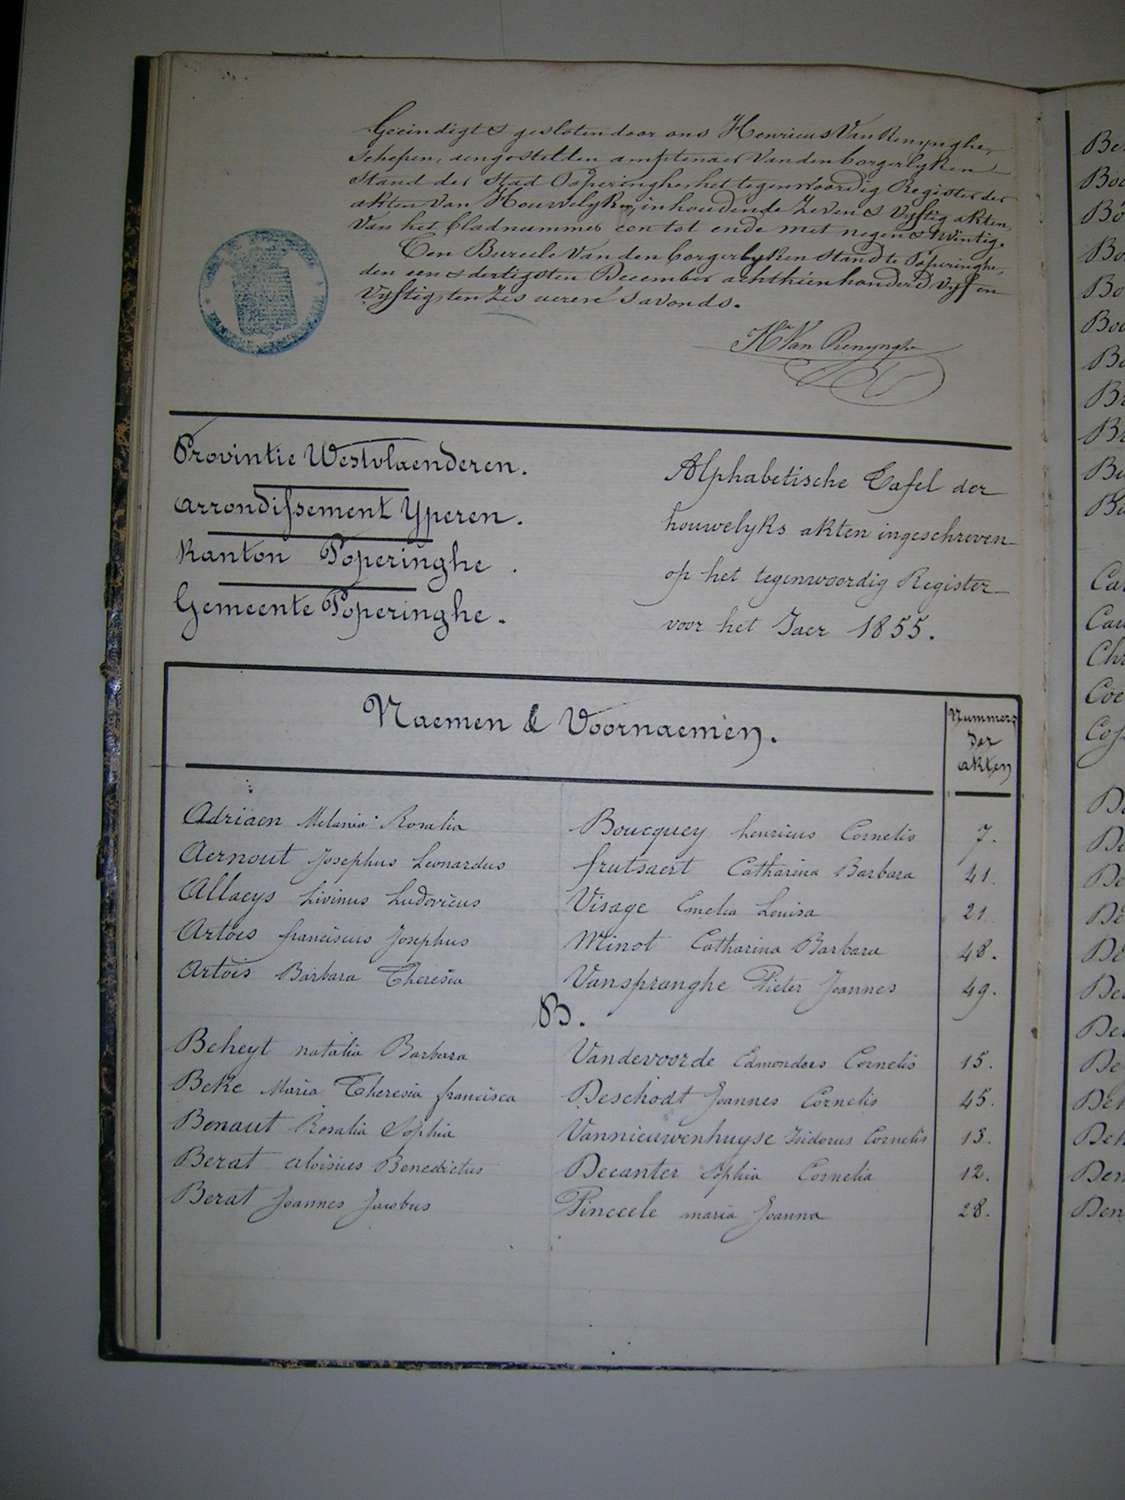 Geëindigt & gesloten door ons Henricus Van Renynghe,
Schepen, aengestelden amptenaer Vanden borgerlyken
Stand der Stad Poperinghe, het tegenwoordig Register der
akten Van Houwelyk, inhoudende Zeven & Vyftig akten
Van het bladnummer een tot ende met negen & twintig.
Ten Bureele Van den borgerlyken Stand te Poperinghe,
den een & dertigsten December achthienhonderd vyf en
Vyftig, ten Zes ueren 's avonds.
Hri Van Renynghe
Provintie Westvlaenderen.
Arrondissement Yperen.
Kanton Poperinghe.
Gemeente Poperinghe.
Alphabetische Tafel der
houwelyks akten ingeschreven
op het tegenwoordig Register
voor het Jaer 1855.
Naemen & Voornaemen.
Nummers
der
akten
Adriaen Melania Rosalia Boucquey henricus Cornelis 7.
Aernout Josephus Leonardus frutsaert Catharina Barbara 41.
Allaeys Livinus Ludovicus Visage Emelia Louisa 21
Artois franciscus Josephus Minot Catharina Barbara 48.
Artois Barbara Theresia Vanspranghe Pieter Joannes 49.
B.
Beheyt natalia Barbara Vandevoorde Edmondus Cornelis 15.
Beke Maria Theresia francisca Deschodt Joannes Cornelis 45.
Benaut Rosalia Sophia Vannieuwenhuyse Isidorus Cornelis 13.
Berat aloisius Benedictus Decanter Sophia Cornelia 12.
Berat Joannes Jacobus Pinceele maria Joanna 28.